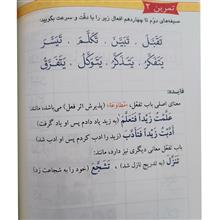 تمرین ۲
صیغه‌های دوّم تا چهاردهم افعال زیر را با دقّت و سرعت بگویید:
تَقَبَّلَ . تَبَیَّنَ . تَکَلَّمَ . تَیَسَّرَ
یَتَفَکَّرُ . یَتَذَکَّرُ . یَتَوَکَّلُ . یَتَفَرَّقُ
فایده:
معنای اصلی باب تفعّل، «مُطاوَعَة» (پذیرش اثر فعل) می‌باشد، مانند:
عَلَّمْتُ زَیْداً فَتَعَلَّمَ (به زید یاد دادم پس او یاد گرفت)
أَدَّبْتُ زَیْداً فَتَأَدَّبَ (زید را ادب کردم پس او ادب شد)
باب تفعّل معانی دیگری نیز دارد، مانند:
تَنَزَّلَ (به تدریج نازل شد) ، تَشَجَّعَ (خود را به شجاعت زد)